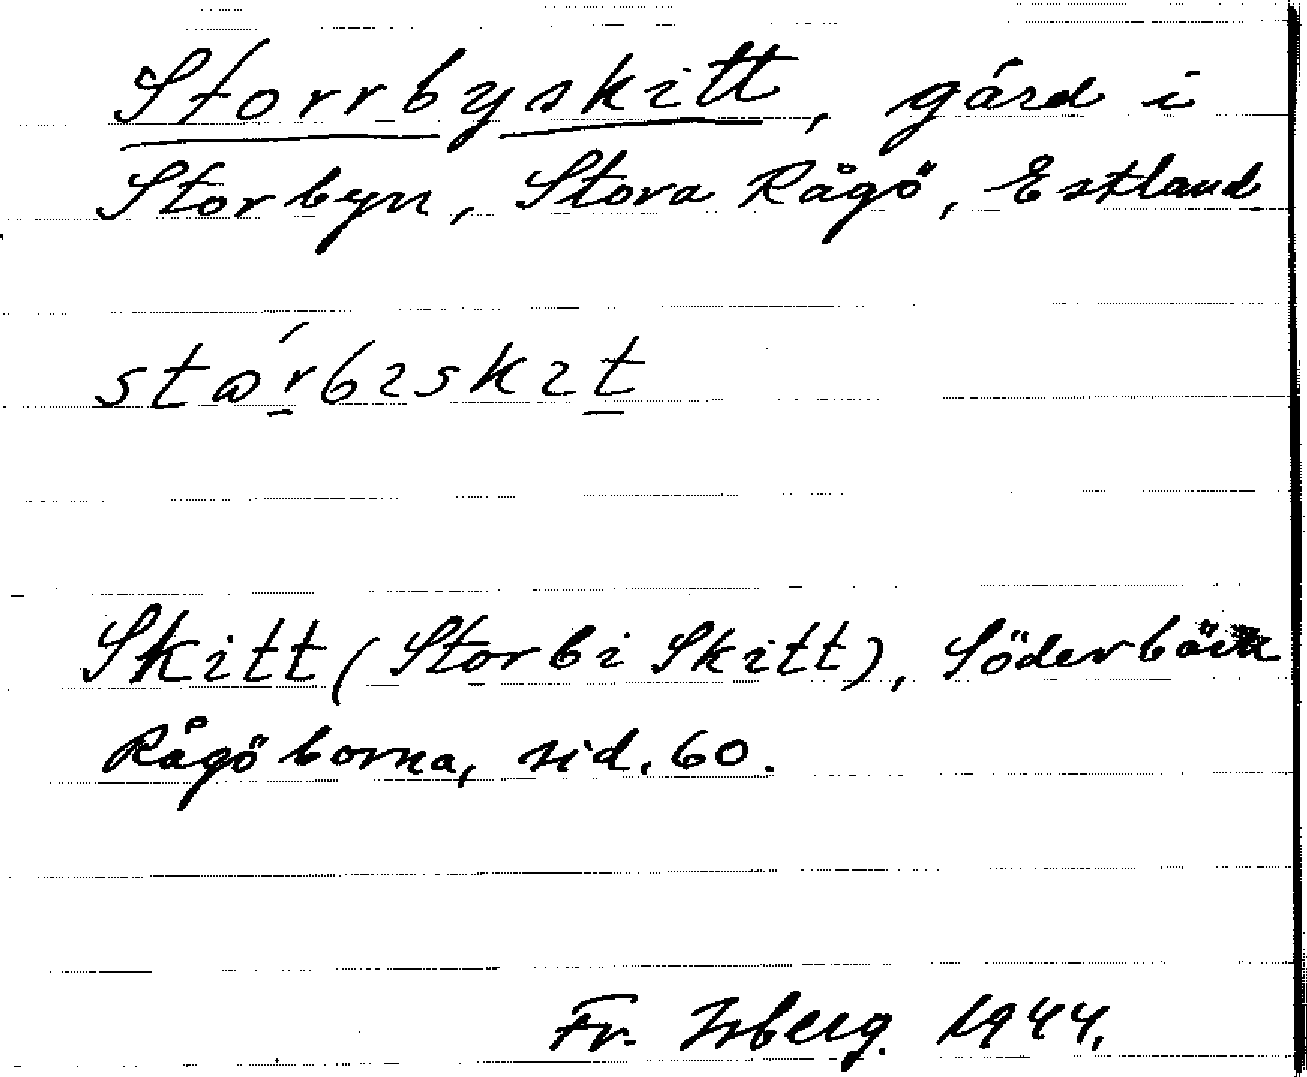 Storrbyskitt, gård i
Storbyn, Stora Rågö, Estland
stɷṟ́bıskıṯ
Skitt (Storbi Skitt), Söderbäck
Rågöborna, sid. 60.
Fr. Isberg. 1944.